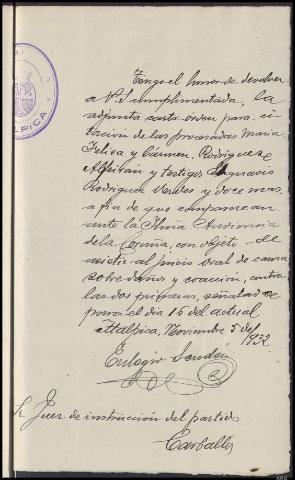 Tengo el honor de devolver
a V.S. cumplimentada, la
adjunta carta-orden para ci-
tación de las procesadas María
Felisa y Cármen, Rodriguez
Alfeirán y testigos Ygnacio
Rodriguez Verdes y doce mas,
a fin de que comparezcan
ante la Ilma Audiencia
de la Coruña, con objeto de
asistir al juicio oral de causa
sobre daños y coacción, contra
las dos primeras, señalado
para el dia 15 del actual.
Malpica, Noviembre 5 del
1932
Eulogio Sendón
Sr. Juez de instrucción del partido
Carballo